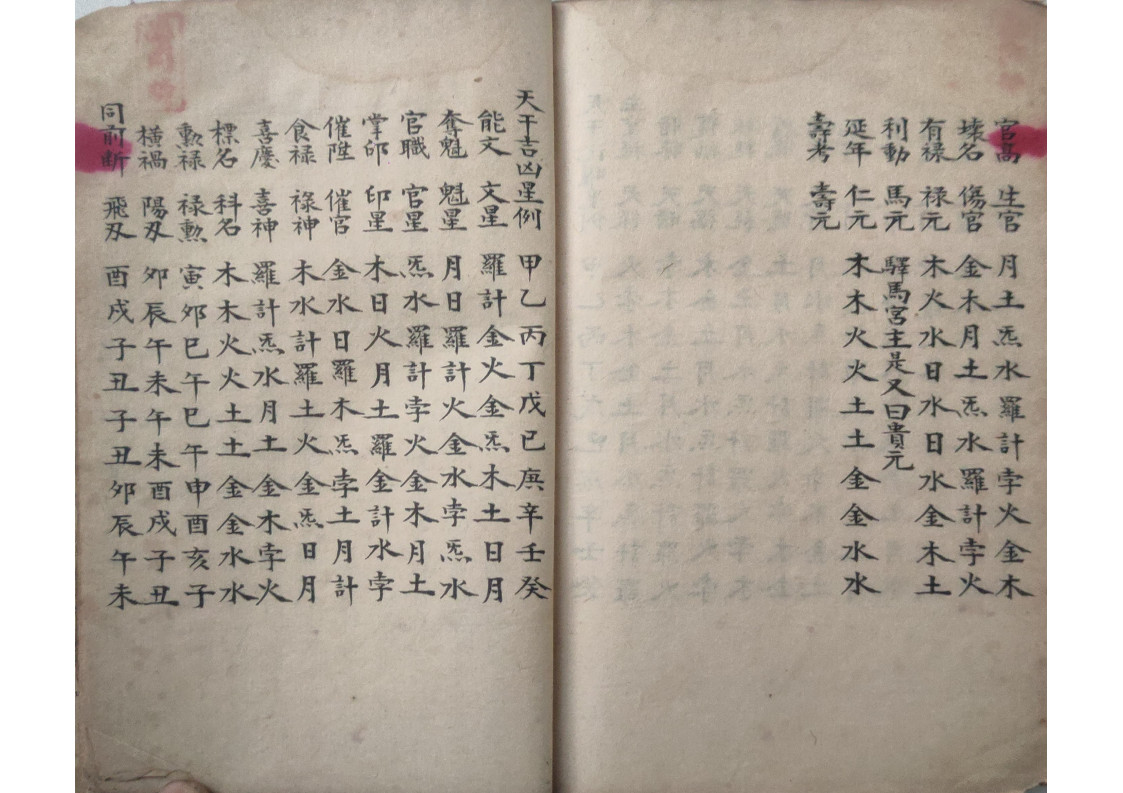 官高 生官 月土炁水羅計孛火金木
壞名 傷官 金木月土炁水羅計孛火
有禄 禄元 木火水日水日水金木土
利動 馬元 驛馬宮主是又曰貴元
延年 仁元 木木火火土土金金水水
壽考 壽元
天干吉凶星例 甲乙丙丁戊己庚辛壬癸
能文 文星 羅計金火金炁木土日月
奪魁 魁星 月日羅計火金水孛炁水
官職 官星 炁水羅計孛火金木月土
掌印 印星 木日火月土羅金計水孛
催陞 催官 金水日羅木炁孛土月計
食禄 禄神 木水計羅土火金炁日月
喜慶 喜神 羅計炁水月土金木孛火
標名 科名 木木火火土土金金水水
勳禄 禄勳 寅夘巳午巳午申酉亥子
橫禍 陽刄 夘辰午未午未酉戌子丑
同前断 飛刄 酉戌子丑子丑夘辰午未